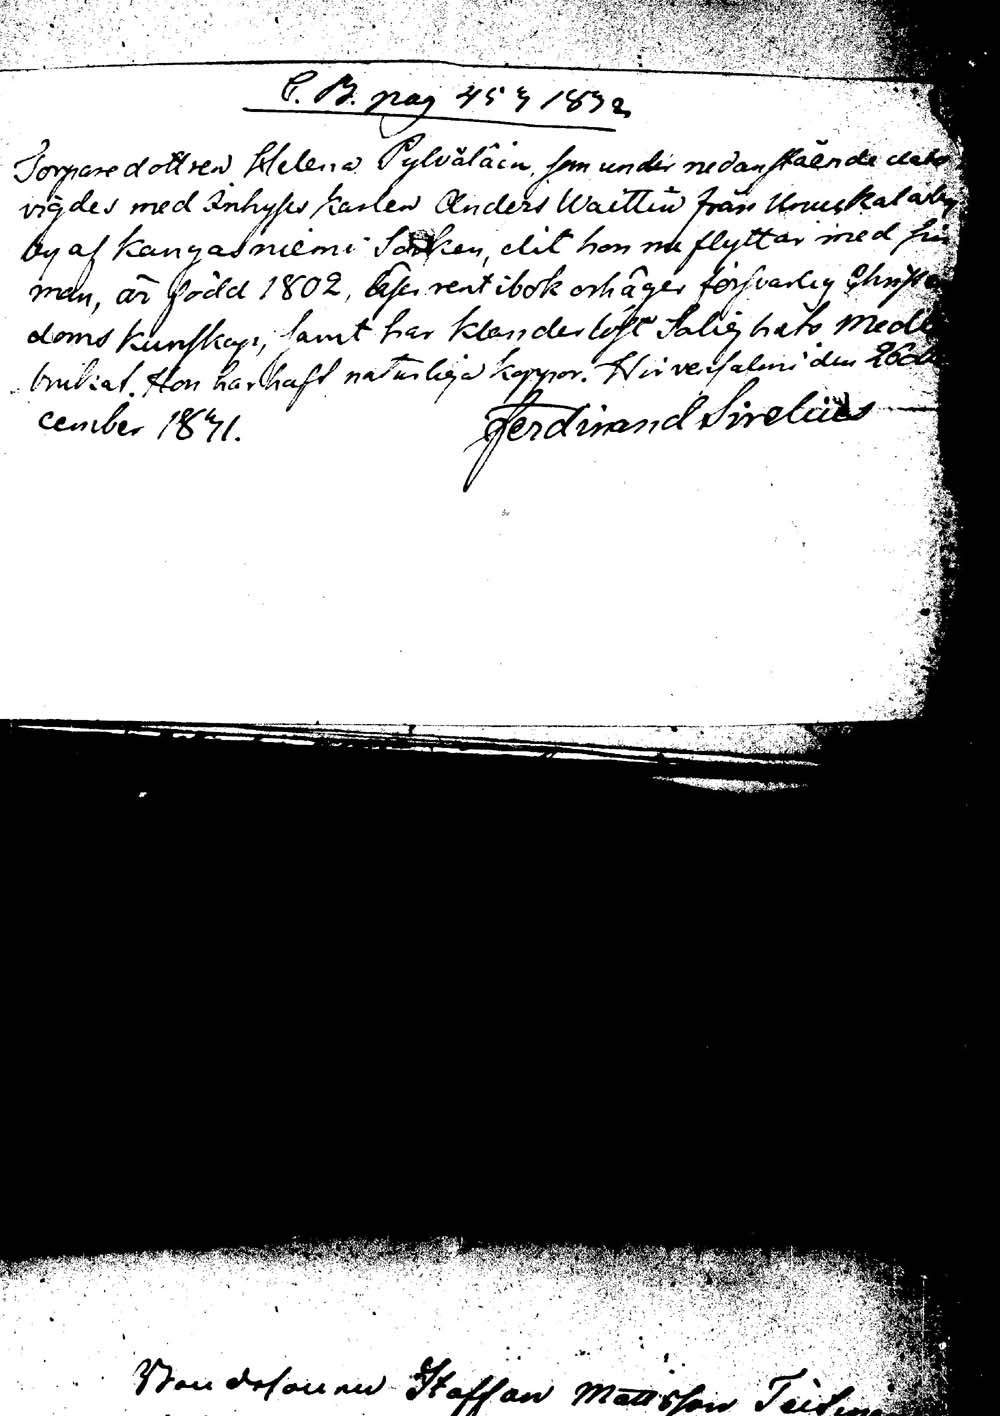 C. B. pag 457 1832
Torparedottren Helena Pylväläin, som under nedanstående dato
vigdes med Inhyses karlen Anders Waittin från
by af Kangasniemi Socken, dit hon nu flyttar med sin
man, är född 1802, läser rent i bok och äger försvarlig Christen
doms kunskap, samt har klanderlöst Salighets Medlen
brukat. Hon har haft naturliga koppor. Hirvensalmi den 26 De
cember 1831.
Ferdinand Sirelius
Bondesonen Staffan Mattsson